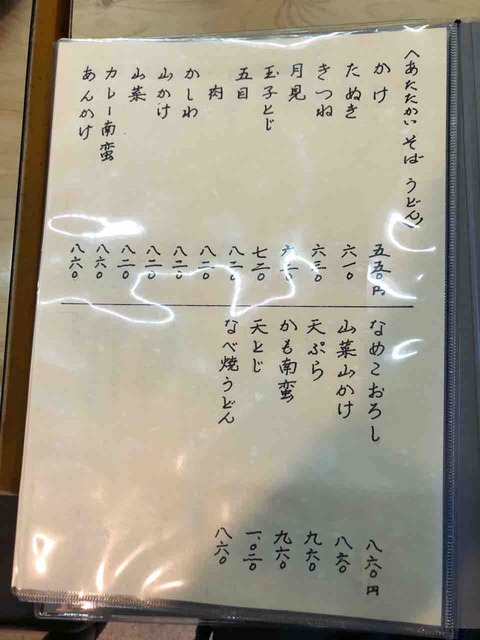 〈あたたかい そば うどん〉
かけ 五五〇円
たぬき 六一〇
きつね 六三〇
月見
玉子とじ 七三〇
五目 八二〇
肉 八二〇
かしわ 八二〇
山かけ 八二〇
山菜 八二〇
カレー南蛮 八六〇
あんかけ 八六〇
なめこおろし 八六〇円
山菜山かけ 八六〇
天ぷら 九六〇
かも南蛮 九六〇
天とじ 一、〇二〇
なべ焼うどん 八六〇